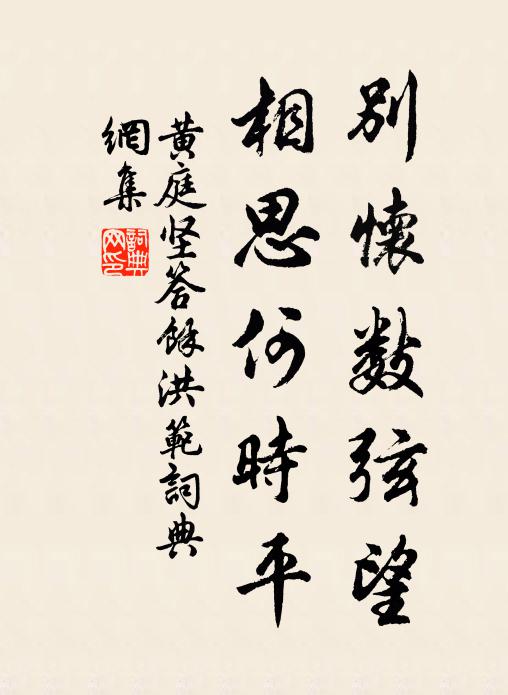 別懷數弦望
相思何時平
黄庭坚答餘洪範詞典
網集
詞典
网印